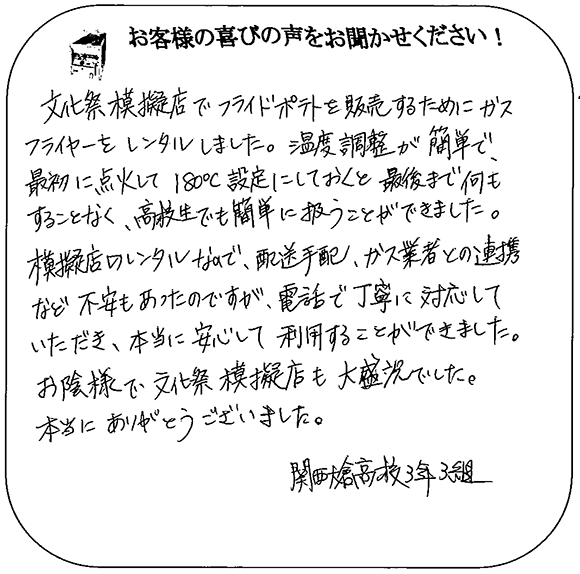 お客様の喜びの声をお聞かせください！
文化祭模擬店でフライドポテトを販売するためにガス
フライヤーをレンタルしました。温度調整が簡単で、
最初に点火して180℃設定にしておくと最後まで何も
することなく、高校生でも簡単に扱うことができました。
模擬店のレンタルなので、配送手配、ガス業者との連携
など不安もあったのですが、電話で丁寧に対応して
いただき、本当に安心して利用することができました。
お陰様で文化祭模擬店も大盛況でした。
本当にありがとうございました。
関西大倉高校3年3組